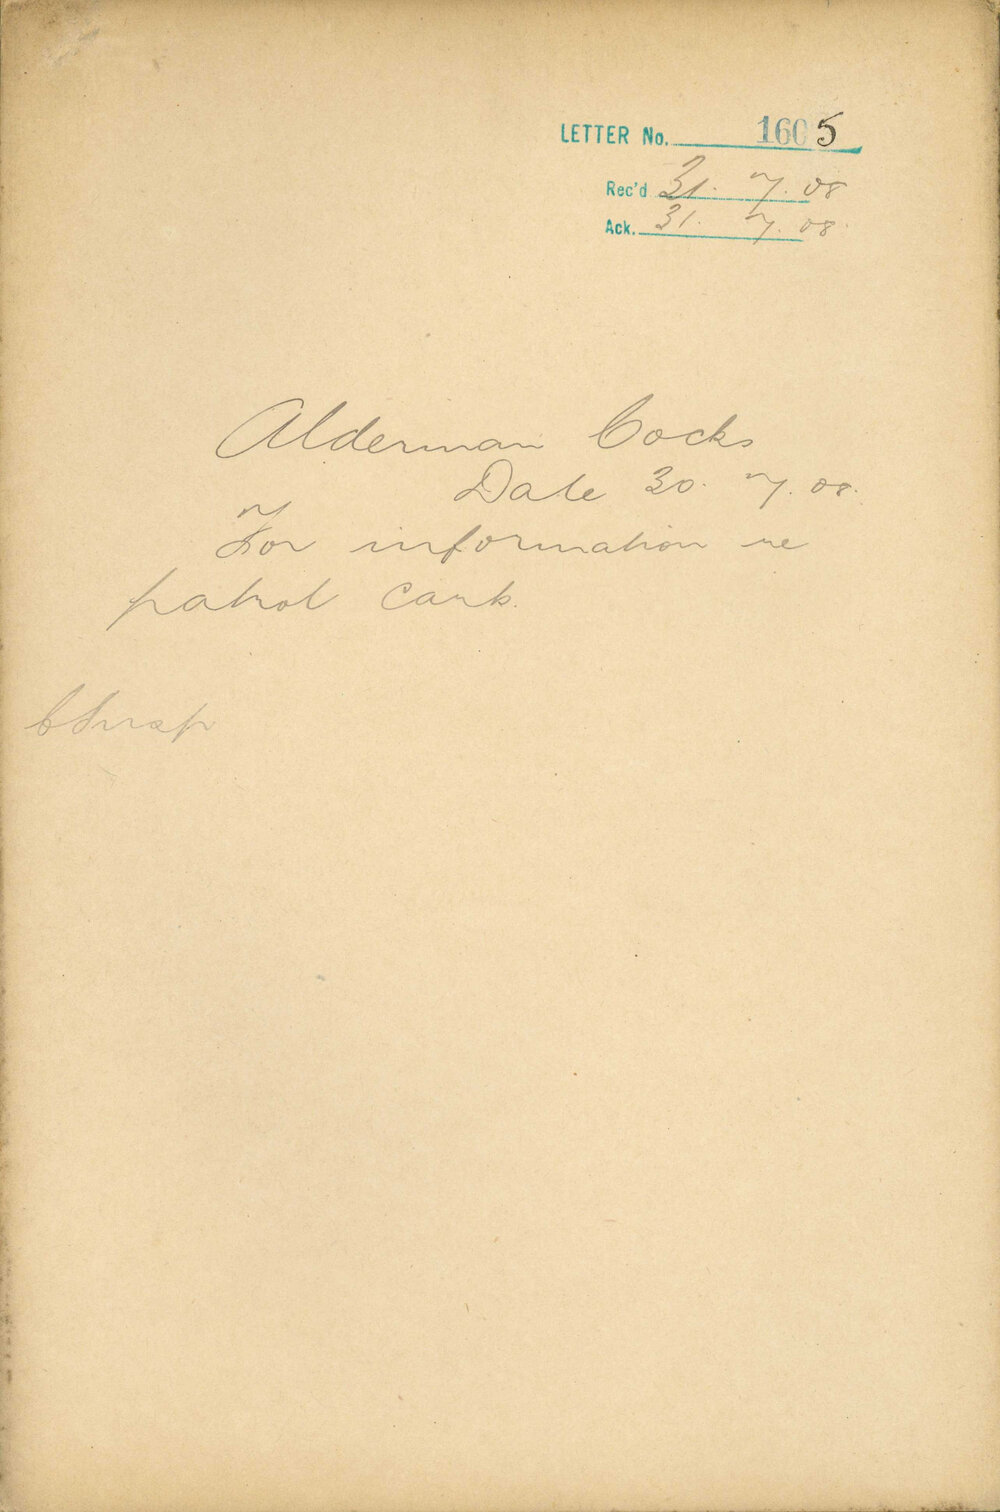 LETTER No. 1605
Rec'd 31. 7. 08
Ack. 31. 7. 08.
Alderman Cocks
Date 30. 7. 08.
For information re
patrol carts.